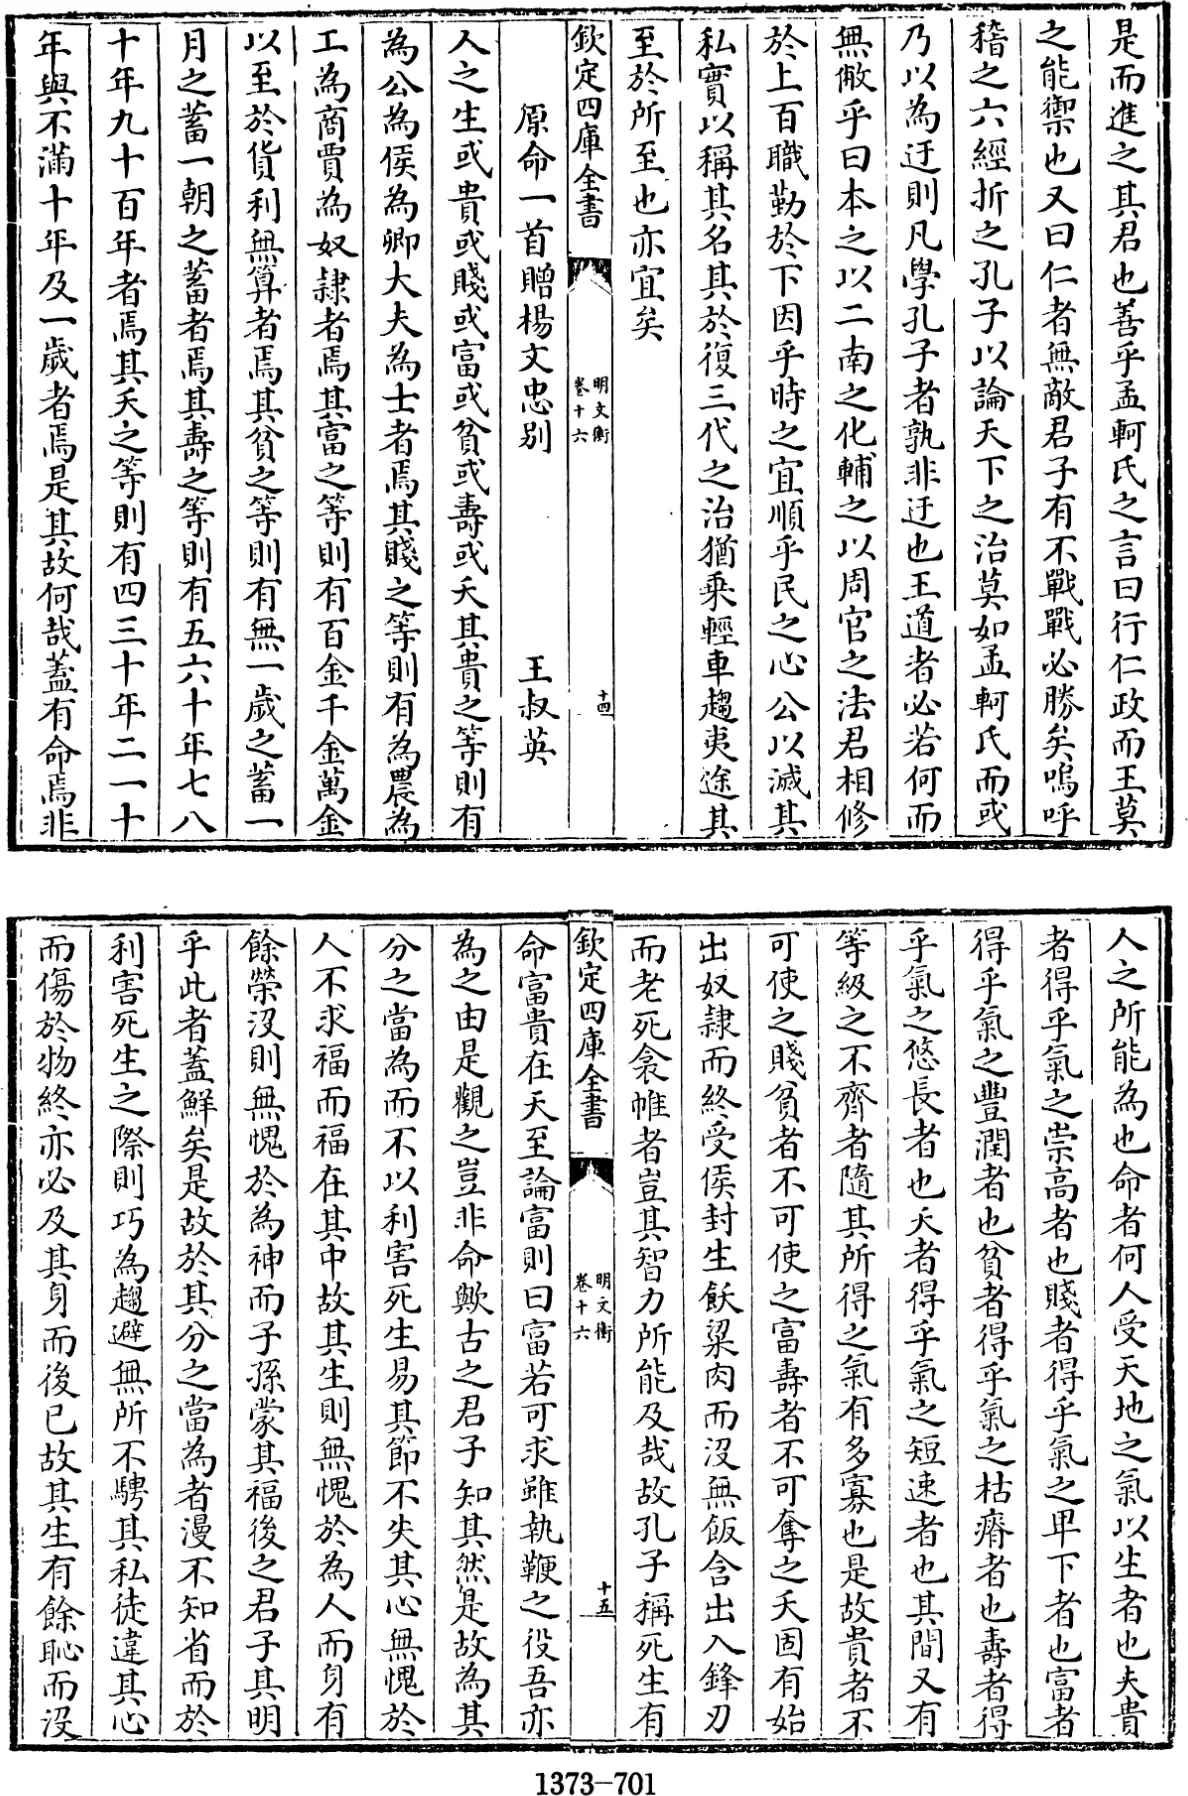 是而進之其君也善乎孟軻氏之言曰行仁政而王莫
之能禦也又曰仁者無敵君子有不戰戰必勝矣嗚呼
稽之六經折之孔子以論天下之治莫如孟軻氏而或
乃以為迂則凡學孔子者孰非迂也王道者必若何而
無敝乎曰本之以二南之化輔之以周官之法君相修
於上百職勤於下因乎時之宜順乎民之心公以滅其
私實以稱其名其於復三代之治猶乗輕車趨夷途其
至於所至也亦宜矣
欽定四庫全書
明文衡
卷十六
十四
原命一首贈楊文忠别
王叔英
人之生或貴或賤或富或貧或壽或夭其貴之等則有
為公為侯為卿大夫為士者焉其賤之等則有為農為
工為商賈為奴隷者焉其富之等則有百金千金萬金
以至於貨利無算者焉其貧之等則有無一歲之蓄一
月之蓄一朝之蓄者焉其壽之等則有五六十年七八
十年九十百年者焉其夭之等則有四三十年二一十
年與不滿十年及一歲者焉是其故何哉蓋有命焉非
人之所能為也命者何人受天地之氣以生者也夫貴
者得乎氣之崇高者也賤者得乎氣之卑下者也富者
得乎氣之豐潤者也貧者得乎氣之枯瘠者也壽者得
乎氣之悠長者也夭者得乎氣之短速者也其間又有
等級之不齊者隨其所得之氣有多寡也是故貴者不
可使之賤貧者不可使之富壽者不可奪之夭固有始
出奴隷而終受侯封生飫粱肉而沒無飯含出入鋒刃
而老死衾帷者豈其智力所能及哉故孔子稱死生有
欽定四庫全書
明文衡
卷十六
十五
命富貴在天至論富則曰富若可求雖執鞭之役吾亦
為之由是觀之豈非命歟古之君子知其然是故為其
分之當為而不以利害死生易其節不失其心無愧於
人不求福而福在其中故其生則無愧於為人而身有
餘榮沒則無愧於為神而子孫蒙其福後之君子其明
乎此者蓋鮮矣是故於其分之當為者漫不知省而於
利害死生之際則巧為趨避無所不騁其私徒違其心
而傷於物終亦必及其身而後已故其生有餘恥而沒
1373-701